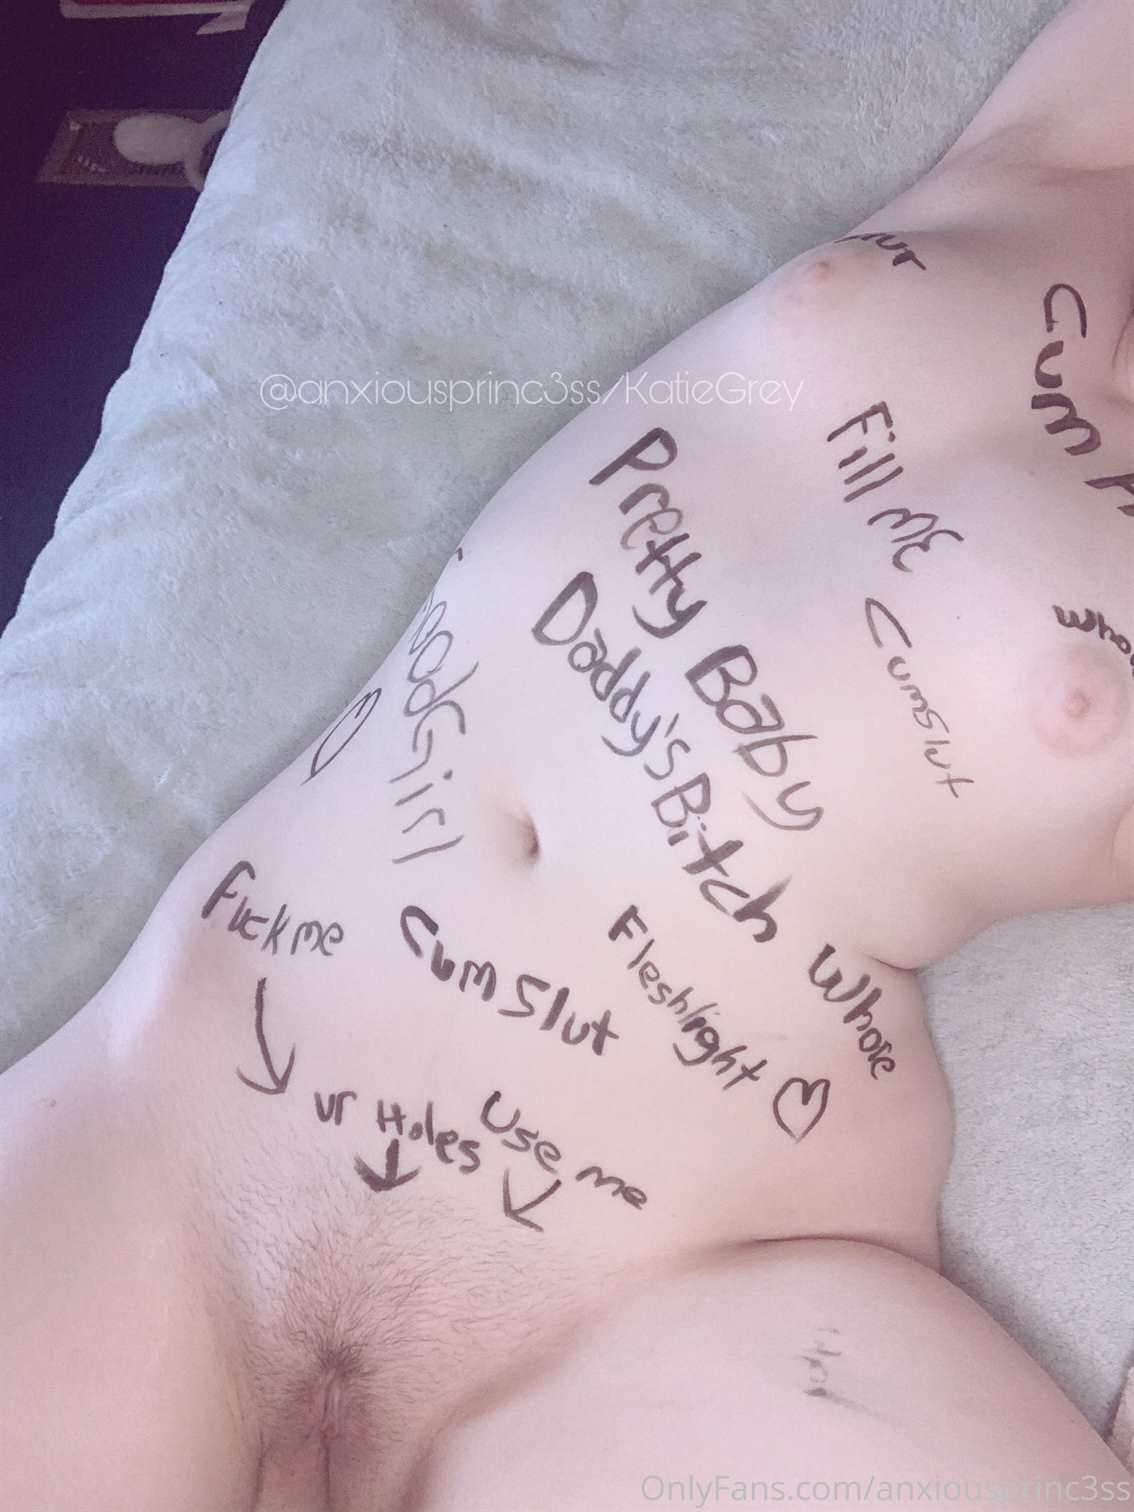 @anxiousprinc3ss/KatieGrey
Cum
Fill ME
Pretty Baby
Daddy's Bitch
Cumslut
Girl
Fuck me
Cum Slut
Fleshlight
Whore
ur Holes
Use me
OnlyFans.com/anxiousprinc3ss